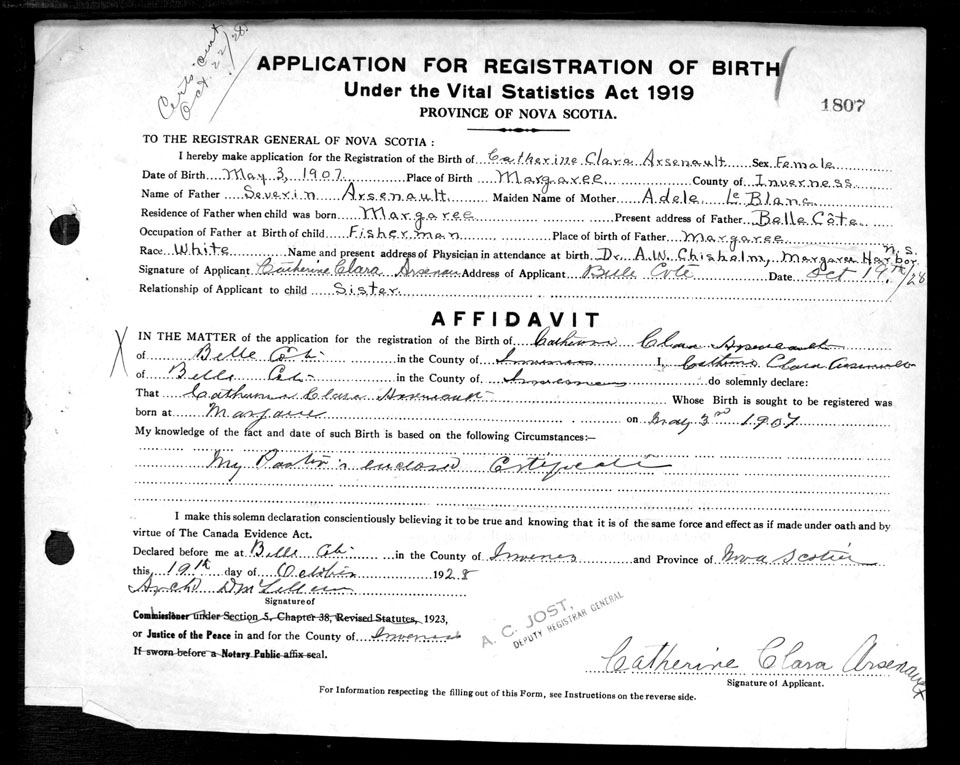 Certs. sent
Oct. 22/28.
APPLICATION FOR REGISTRATION OF BIRTH
Under the Vital Statistics Act 1919
PROVINCE OF NOVA SCOTIA.
1807
TO THE REGISTRAR GENERAL OF NOVA SCOTIA:
I hereby make application for the Registration of the Birth of Catherine Clara Arsenault Sex Female
Date of Birth May 3, 1907 Place of Birth Margaree County of Inverness
Name of Father Severin Arsenault Maiden Name of Mother Adele Le Blanc
Residence of Father when child was born Margaree Present address of Father Belle Côte
Occupation of Father at Birth of child Fisherman Place of birth of Father Margaree
Race White Name and present address of Physician in attendance at birth Dr. A.W. Chisholm, Margaree Harbor N.S.
Signature of Applicant Catherine Clara Arsenau Address of Applicant Belle Côte Date Oct 19th/28
Relationship of Applicant to child Sister
AFFIDAVIT
X IN THE MATTER of the application for the registration of the Birth of Catherine Clara Arseneault
of Belle Cote in the County of Inverness I, Catherine Clara Arseneault
of Belle Cote in the County of Inverness do solemnly declare:
That Catherine Clara Arseneault Whose Birth is sought to be registered was
born at Margaree on May 3rd 1907
My knowledge of the fact and date of such Birth is based on the following Circumstances:—
My Pastor's enclosed Certificate
I make this solemn declaration conscientiously believing it to be true and knowing that it is of the same force and effect as if made under oath and by
virtue of The Canada Evidence Act.
Declared before me at Belle Cote in the County of Inverness and Province of Nova Scotia
this 19th day of October 1928
Arch D McLellan
Signature of
Commissioner under Section 5, Chapter 38, Revised Statutes, 1923,
or Justice of the Peace in and for the County of Inverness
If sworn before a Notary Public affix seal.
A. C. JOST,
DEPUTY REGISTRAR GENERAL
Catherine Clara Arsenault
Signature of Applicant.
For Information respecting the filling out of this Form, see Instructions on the reverse side.